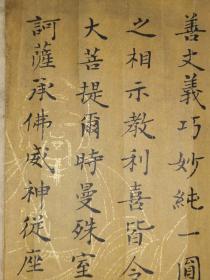 善文義巧妙純一圓
之相示教利喜皆令
大菩提爾時曼殊室
訶薩承佛威神從座